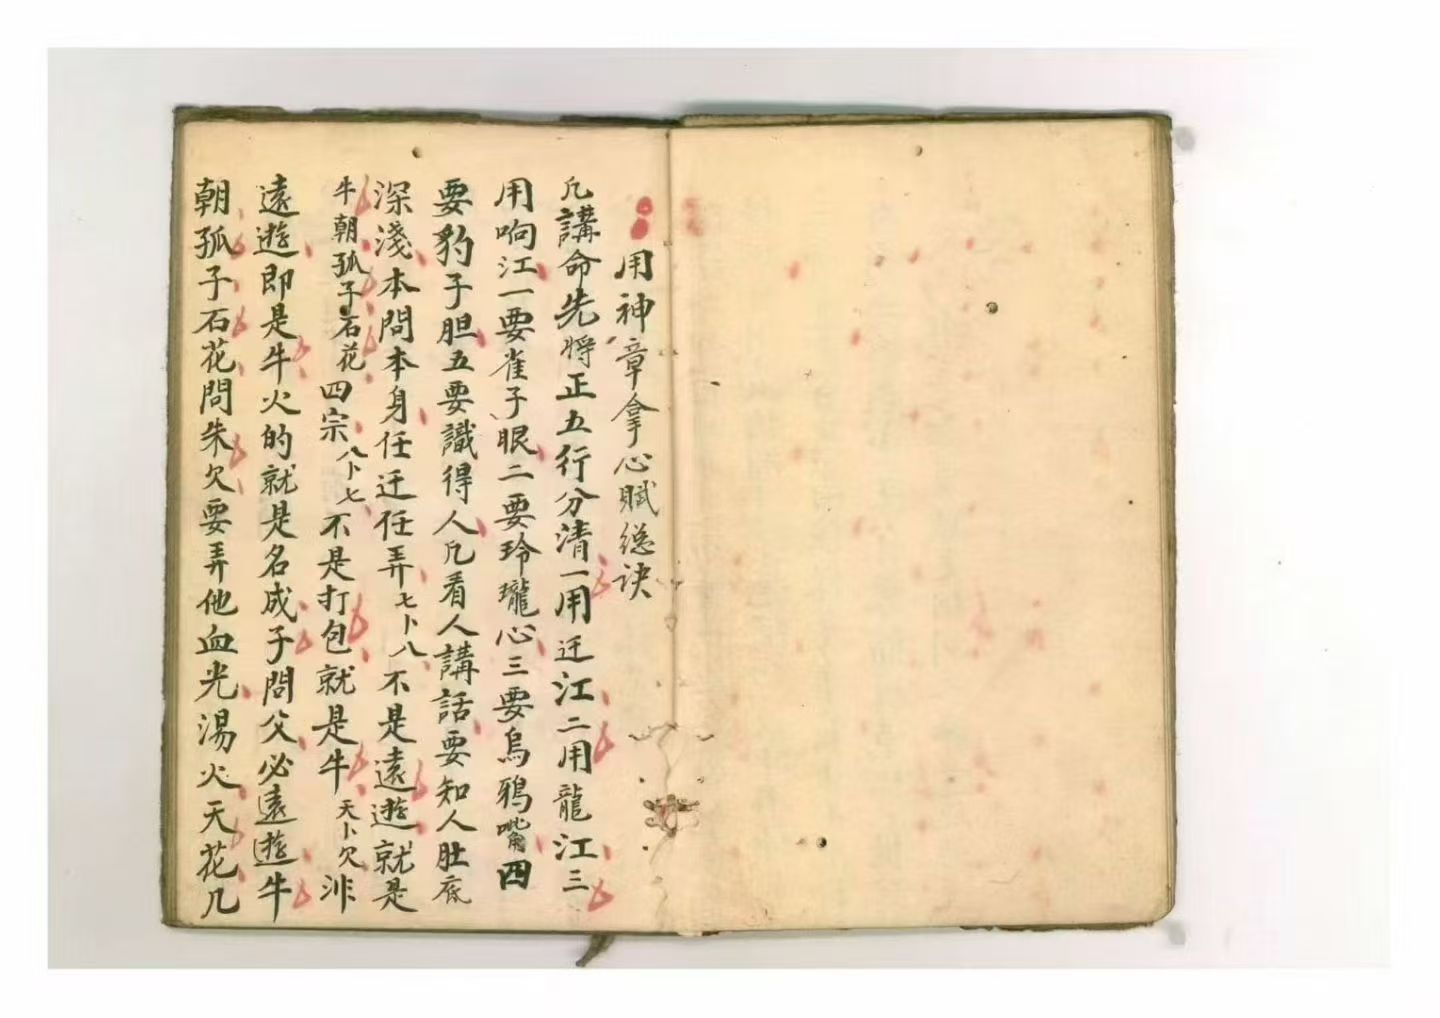 用神章拿心賦總訣
凡講命先將正五行分清一用迁江二用龍江三
用响江一要雀子眼二要玲瓏心三要烏鴉嘴四
要豹子胆五要識得人凡看人講話要知人肚底
深淺本問本身任迁任弄七卜八不是遠遊就是
牛朝孤子石花四宗八卜七不是打包就是牛天卜欠泮
遠遊即是牛火的就是名成子問父必遠遊牛
朝孤子石花問朱欠要弄他血光湯火天花几